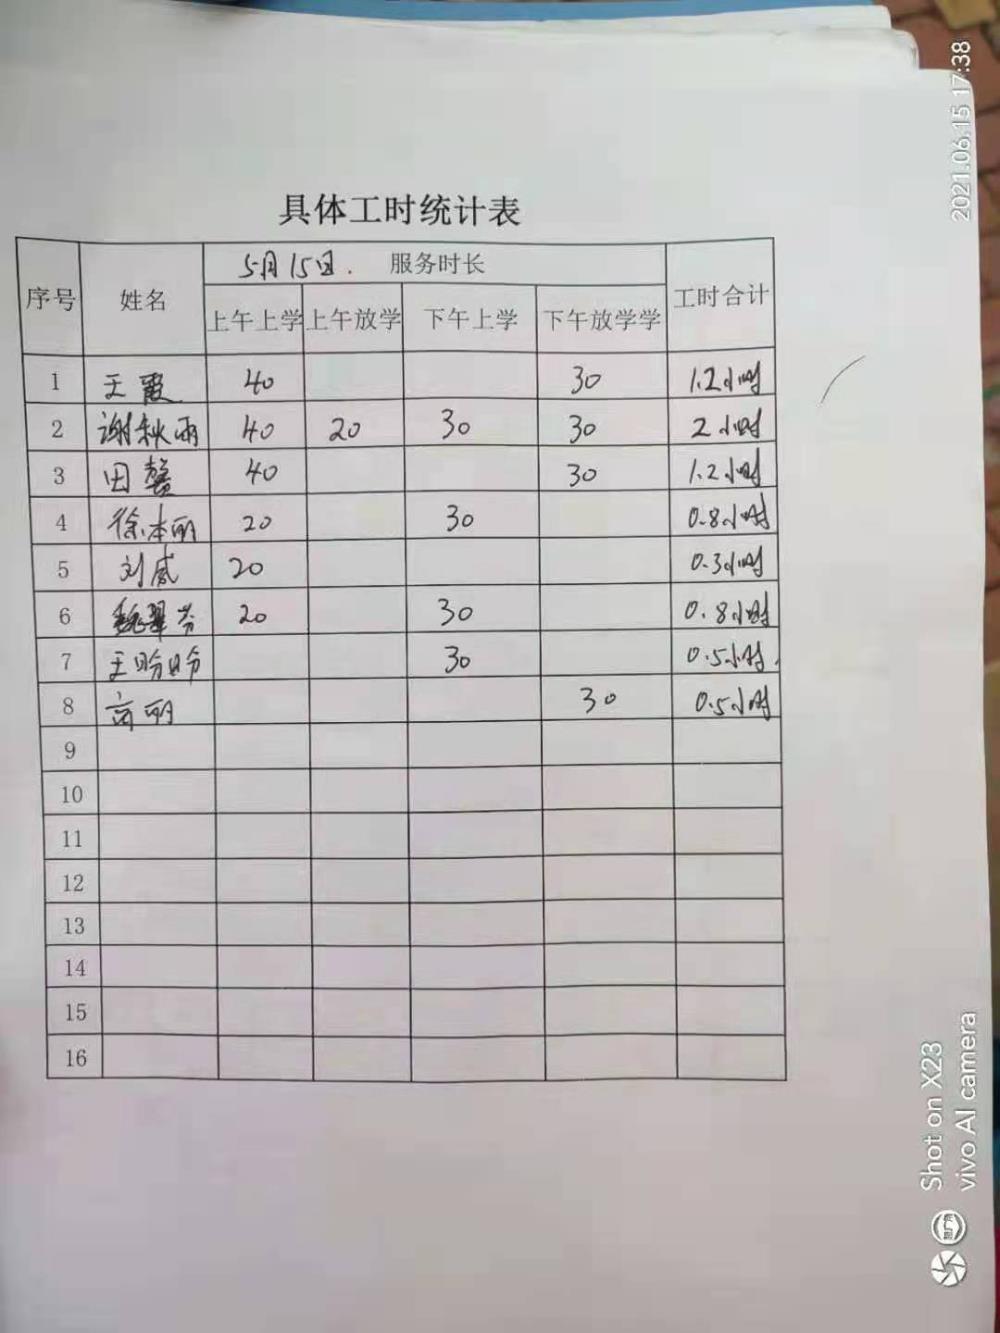 具体工时统计表
序号 姓名 5月15日. 服务时长 工时合计
上午上学 上午放学 下午上学 下午放学学
1 王霞 40 30 1.2小时
2 谢秋雨 40 20 30 30 2小时
3 田 40 30 1.2小时
4 徐本丽 20 30 0.8小时
5 刘威 20 0.3小时
6 魏翠芳 20 30 0.8小时
7 王盼盼 30 0.5小时.
8 高丽 30 0.5小时
9
10
11
12
13
14
15
16
2021.06.15 17:38
Shot on X23
vivo AI camera